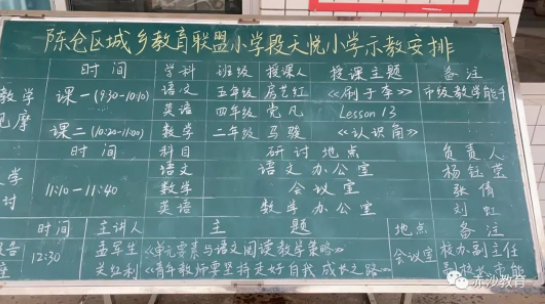 陈仓区城乡教育联盟小学段天悦小学示教安排
时间 学科 班级 授课人 授课主题 备注
教学 课一(9:30-10:10) 语文 五年级 房艺红 《刷子李》 市级教学能手
观摩 英语 四年级 党凡 Lesson 13
课二(10:20-11:00) 数学 二年级 马骏 《认识角》
时间 科目 研讨地点 负责人
语文 语文办公室 杨钰莹
11:10-11:40 数学 会议室 张倩
讨 英语 数学办公室 刘虹
时间 主讲人 主题 地点 备注
12:30 孟军生 《单元要素与语文阅读教学策略》 会议室 校办副主任
关红利 《青年教师要坚持走好自我成长之路》
赤沙教育